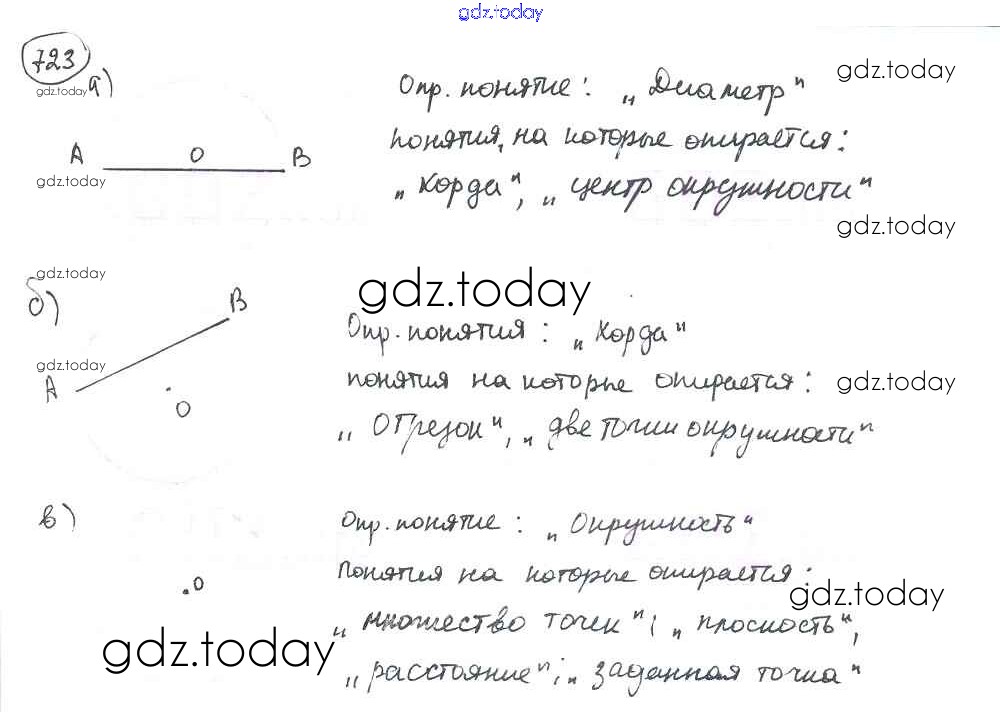 gdz.today
723
gdz.today
а)
Опр. понятие: „Диаметр"
gdz.today
понятия, на которые опирается:
А О В
gdz.today
„Хорда", „центр окружности"
gdz.today
gdz.today
б)
gdz.today
В
Опр. понятия: „Хорда"
gdz.today
А
О
понятия на которые опирается:
gdz.today
„Отрезок", „две точки окружности"
в)
Опр. понятие: „Окружность"
О
понятия на которые опирается:
gdz.today
„множество точек"; „плоскость",
gdz.today
„расстояние"; „заданная точка"